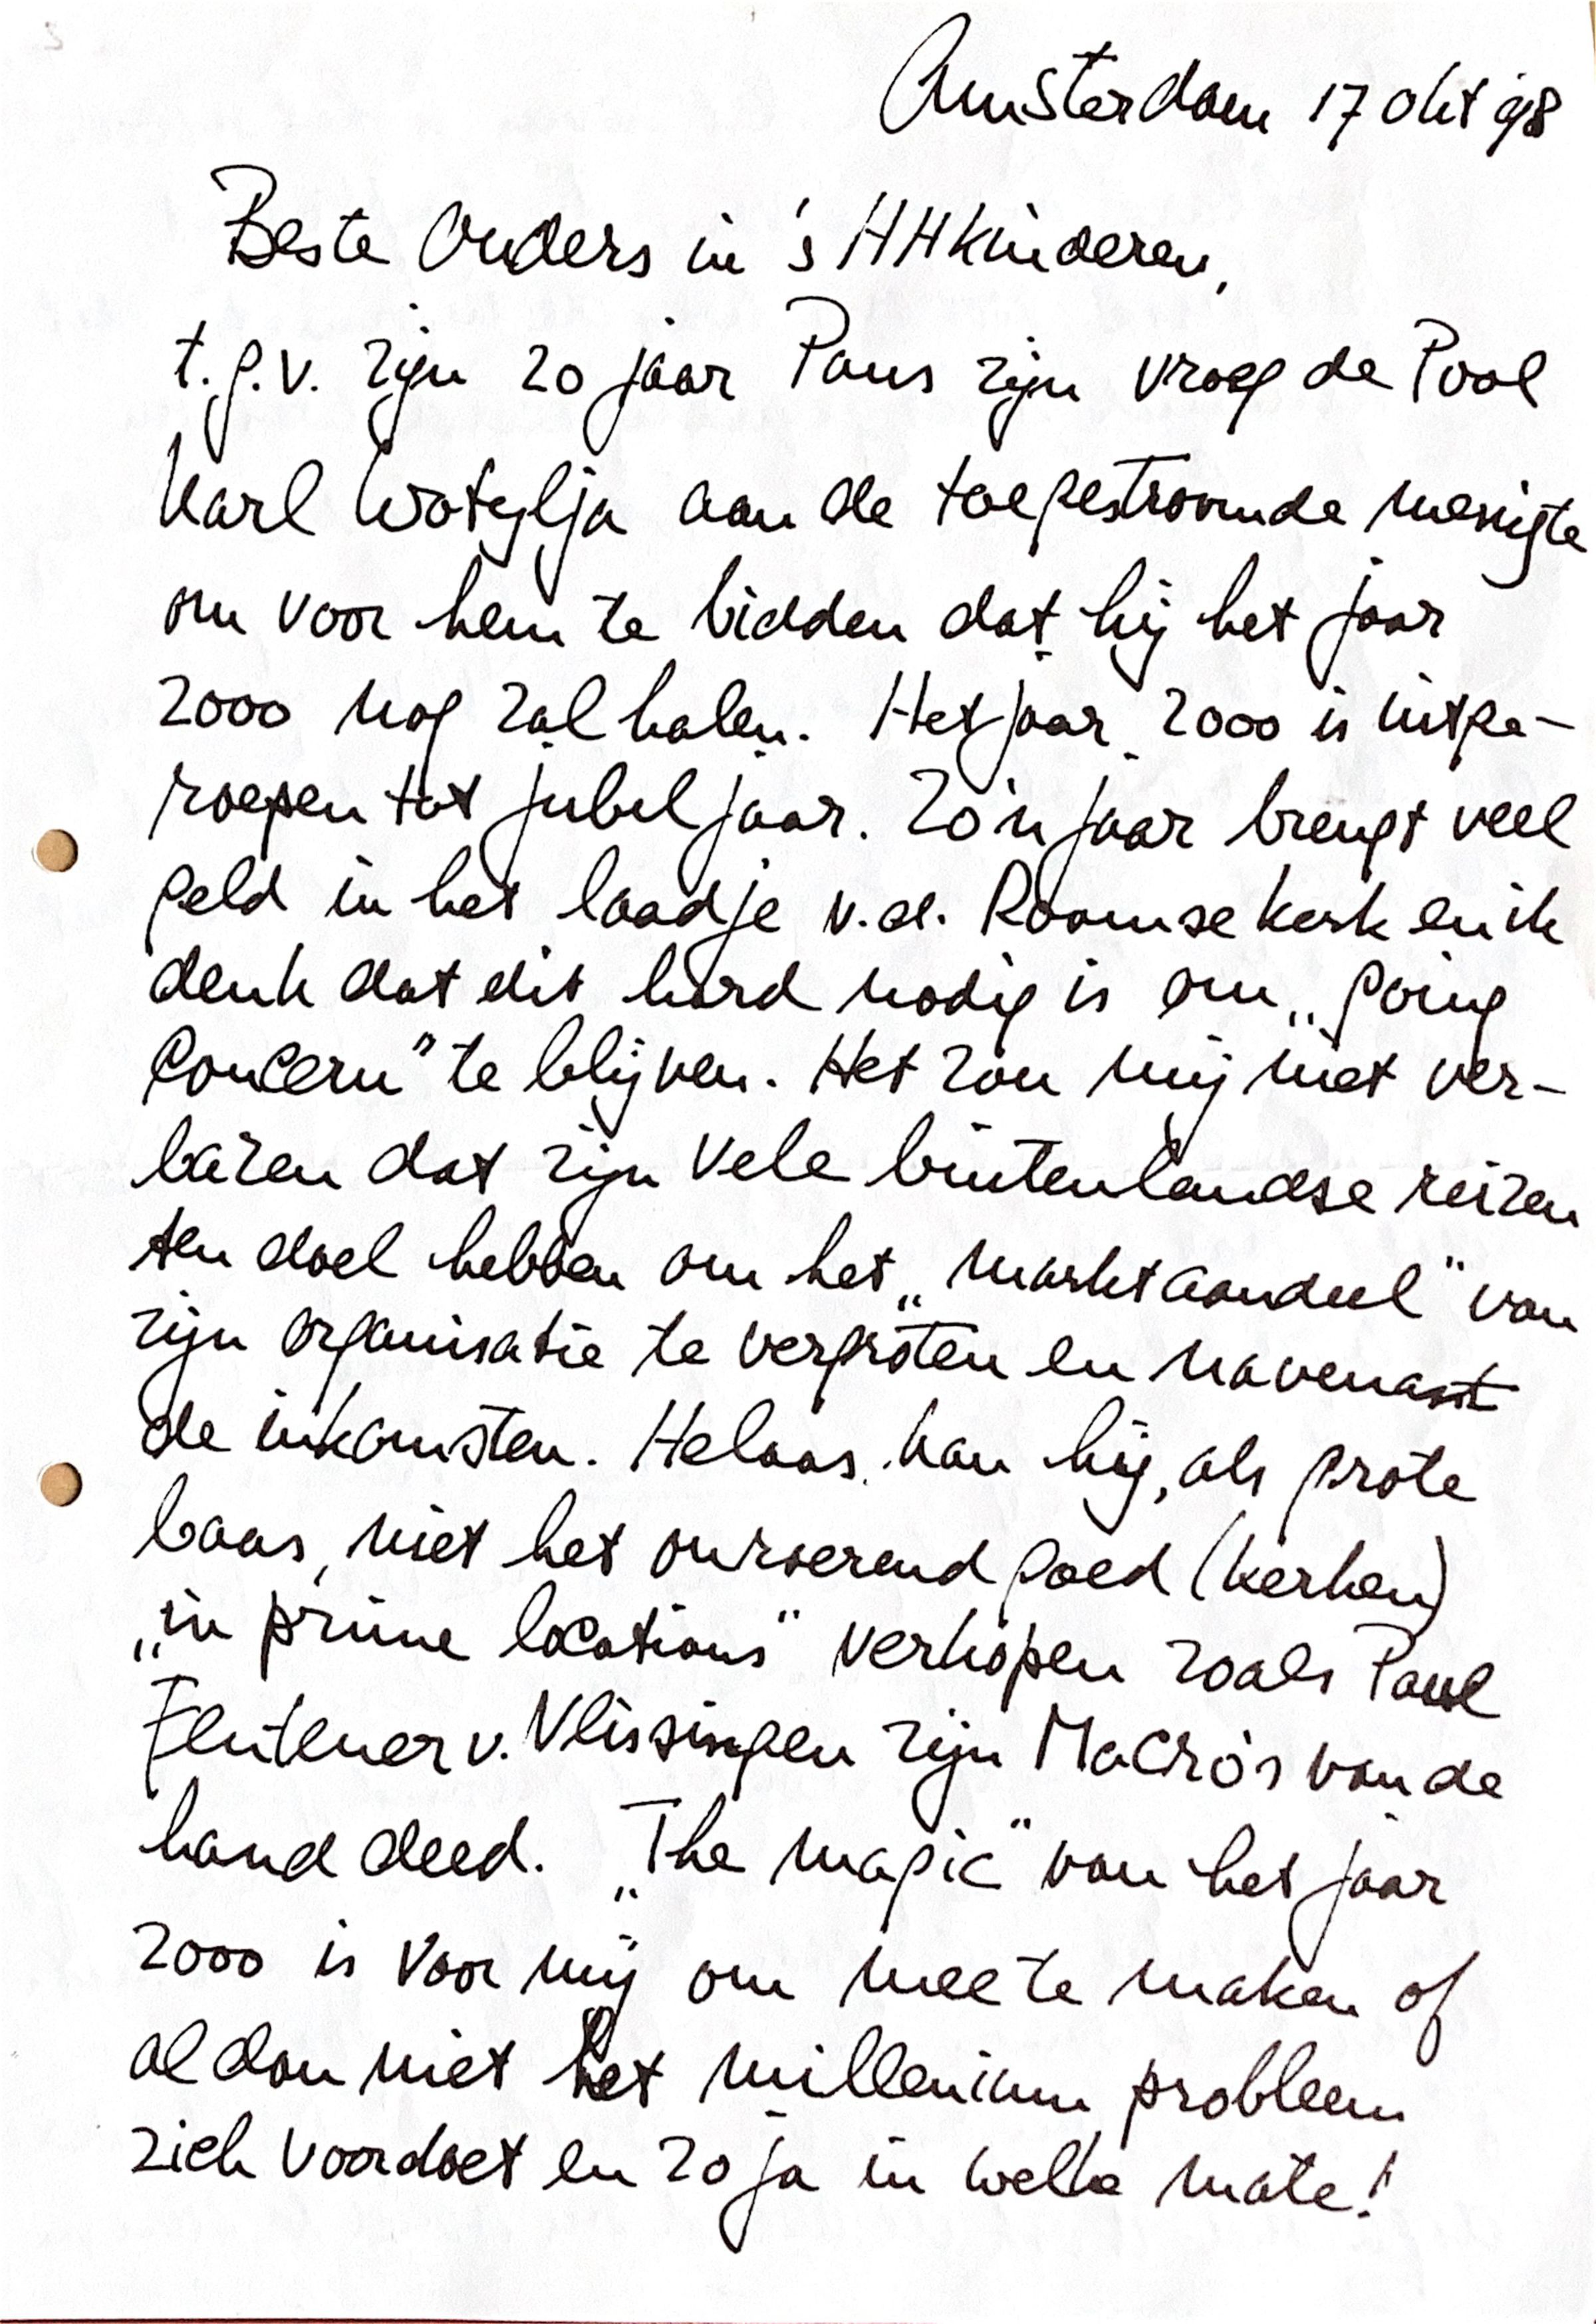 Amsterdam 17 okt '98
Beste Ouders in 's HHkinderen,
t.g.v. zijn 20 jaar Paus zijn vroeg de Pool
Karl Wotylja aan de toegestroomde menigte
om voor hem te bidden dat hij het jaar
2000 nog zal halen. Het jaar 2000 is uitge-
roepen tot jubeljaar. Zo'n jaar brengt veel
geld in het laadje v.d. Roomse kerk en ik
denk dat dit hard nodig is om „going
Concern" te blijven. Het zou mij niet ver-
bazen dat zijn vele buitenlandse reizen
ten doel hebben om het „marktaandeel" van
zijn organisatie te vergroten en navenant
de inkomsten. Helaas kan hij, als grote
baas, niet het onroerend goed (kerken)
„in prime locations" verkopen zoals Paul
Fentener v. Vlissingen zijn Macro's van de
hand deed. „The magic" van het jaar
2000 is voor mij om mee te maken of
al dan niet het millenium probleem
zich voordoet en zo ja in welke mate!